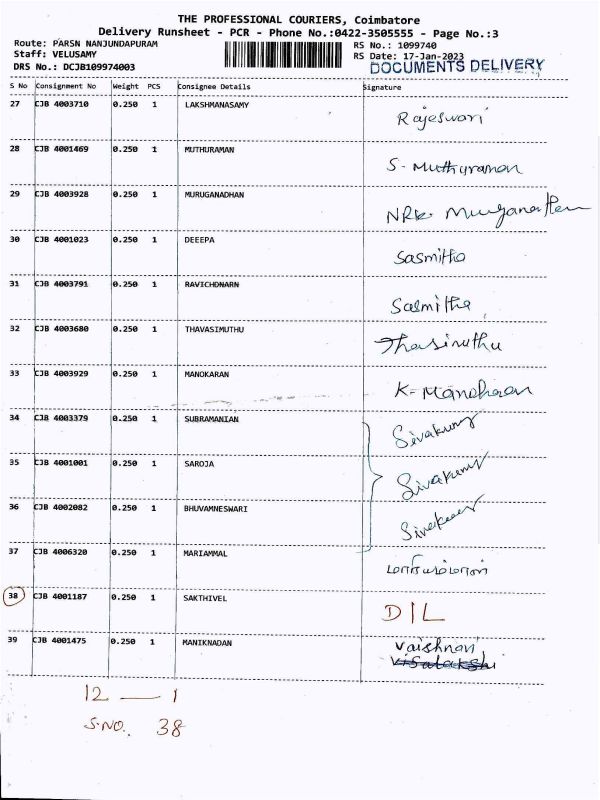 THE PROFESSIONAL COURIERS, Coimbatore
Delivery Runsheet - PCR - Phone No.:0422-3505555 - Page No.:3
Route: PARSN NANJUNDAPURAM RS No.: 1099740
Staff: VELUSAMY RS Date: 17-Jan-2023
DRS No.: DCJB109974003 DOCUMENTS DELIVERY
S No Consignment No Weight PCS Consignee Details Signature
27 CJB 4003710 0.250 1 LAKSHMANASAMY Rajeswari
28 CJB 4001469 0.250 1 MUTHURAMAN S. Muthuraman
29 CJB 4003928 0.250 1 MURUGANADHAN NRK. Muruganathan
30 CJB 4001023 0.250 1 DEEEPA Sasmitha
31 CJB 4003791 0.250 1 RAVICHDNARN Sasmitha
32 CJB 4003680 0.250 1 THAVASIMUTHU
33 CJB 4003929 0.250 1 MANOKARAN K. Manoharan
34 CJB 4003379 0.250 1 SUBRAMANIAN Sivakumar
35 CJB 4001001 0.250 1 SAROJA Sivakumar
36 CJB 4002082 0.250 1 BHUVAMNESWARI Sivakumar
37 CJB 4006320 0.250 1 MARIAMMAL மாரியம்மாள்
38 CJB 4001187 0.250 1 SAKTHIVEL D/L
39 CJB 4001475 0.250 1 MANIKNADAN Vaishnavi
Visalakshi
12 — 1
S.NO. 38